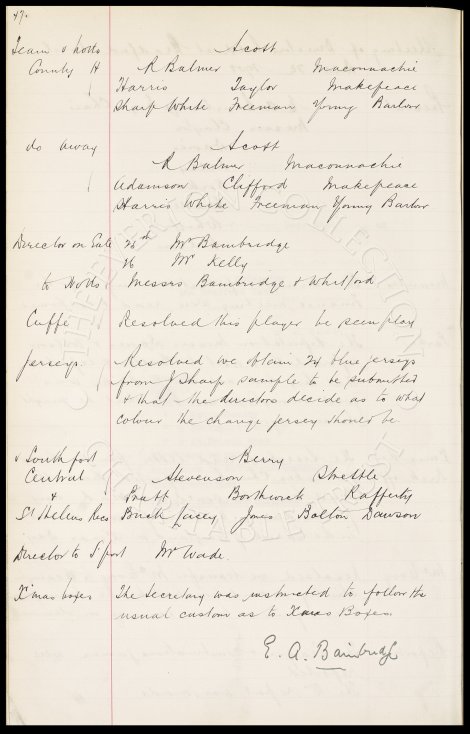 47.
Team v Notts Scott
County H R Balmer Maconnachie
Harris Taylor Makepeace
Sharp White Freeman Young Barlow
do away Scott
R Balmer Maconnachie
Adamson Clifford Makepeace
Harris White Freeman Young Barlow
Director on Gate 26th Mr Bainbridge
26 Mr Kelly
to Notts Messrs Bainbridge & Whitford
Cuffe Resolved this player be seen play
Jerseys. Resolved we obtain 24 blue jerseys
from J Sharp sample to be submitted
& that the directors decide as to what
colour the change jersey should be
v Southport Berry
Central Stevenson Strettle
& Pratt Borthwick Rafferty
St Helens Recs Buck Lacey Jones Bolton Dawson
Director to S'port Mr Wade.
X'mas boxes The Secretary was instructed to follow the
usual custom as to Xmas Boxes
E. A. Bainbridge
THE EVERTON COLLECTION
CHARITABLE TRUST